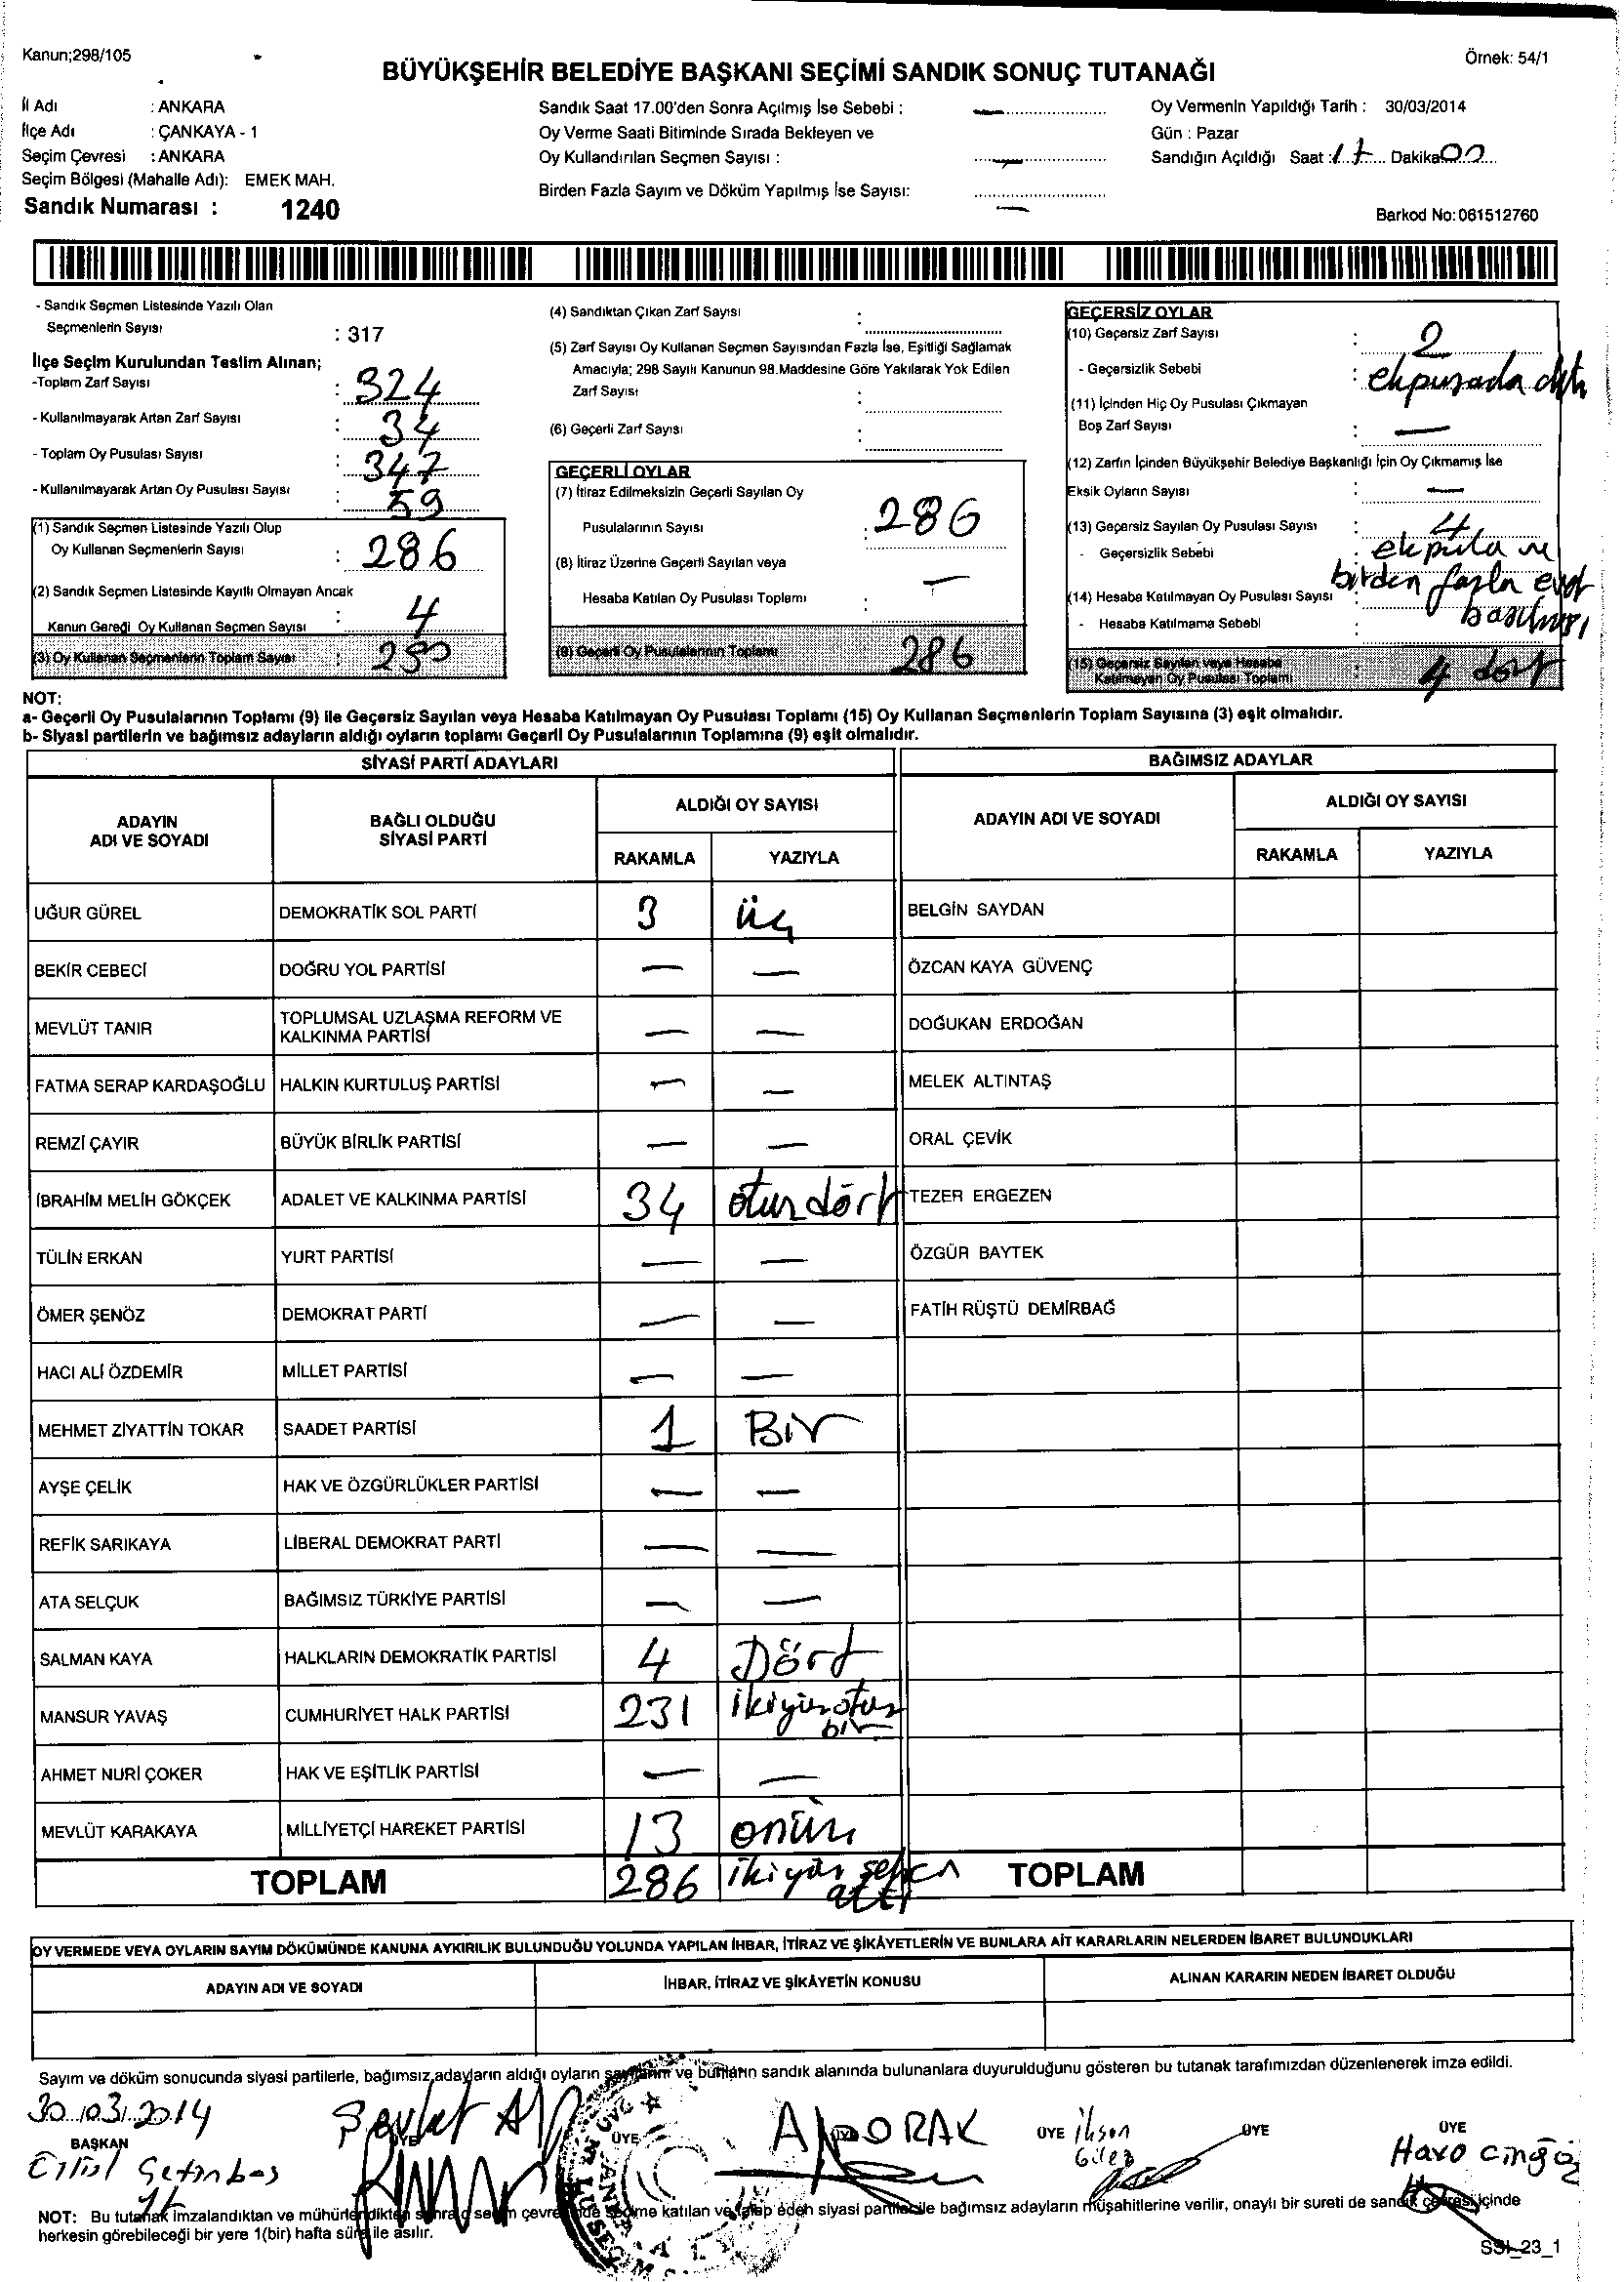 Kanun;298/105
Örnek: 54/1
BÜYÜKŞEHİR BELEDİYE BAŞKANI SEÇİMİ SANDIK SONUÇ TUTANAĞI
İl Adı : ANKARA
İlçe Adı : ÇANKAYA - 1
Seçim Çevresi : ANKARA
Seçim Bölgesi (Mahalle Adı): EMEK MAH.
Sandık Numarası : 1240
Sandık Saat 17.00'den Sonra Açılmış İse Sebebi : —
Oy Verme Saati Bitiminde Sırada Bekleyen ve
Oy Kullandırılan Seçmen Sayısı : —
Birden Fazla Sayım ve Döküm Yapılmış İse Sayısı: —
Oy Vermenin Yapıldığı Tarih : 30/03/2014
Gün : Pazar
Sandığın Açıldığı Saat : 17 Dakika 00
Barkod No: 061512760
- Sandık Seçmen Listesinde Yazılı Olan
Seçmenlerin Sayısı : 317
İlçe Seçim Kurulundan Teslim Alınan;
-Toplam Zarf Sayısı : 324
- Kullanılmayarak Artan Zarf Sayısı : 34
- Toplam Oy Pusulası Sayısı : 347
- Kullanılmayarak Artan Oy Pusulası Sayısı : 59
(1) Sandık Seçmen Listesinde Yazılı Olup
Oy Kullanan Seçmenlerin Sayısı : 286
(2) Sandık Seçmen Listesinde Kayıtlı Olmayan Ancak
Kanun Gereği Oy Kullanan Seçmen Sayısı : 4
(3) Oy Kullanan Seçmenlerin Toplam Sayısı : 290
(4) Sandıktan Çıkan Zarf Sayısı :
(5) Zarf Sayısı Oy Kullanan Seçmen Sayısından Fazla İse, Eşitliği Sağlamak
Amacıyla; 298 Sayılı Kanunun 98.Maddesine Göre Yakılarak Yok Edilen
Zarf Sayısı :
(6) Geçerli Zarf Sayısı :
GEÇERLİ OYLAR
(7) İtiraz Edilmeksizin Geçerli Sayılan Oy
Pusulalarının Sayısı : 286
(8) İtiraz Üzerine Geçerli Sayılan veya
Hesaba Katılan Oy Pusulası Toplamı : —
(9) Geçerli Oy Pusulalarının Toplamı 286
GEÇERSİZ OYLAR
(10) Geçersiz Zarf Sayısı : 2
- Geçersizlik Sebebi :
(11) İçinden Hiç Oy Pusulası Çıkmayan
Boş Zarf Sayısı : —
(12) Zarfın İçinden Büyükşehir Belediye Başkanlığı İçin Oy Çıkmamış İse
Eksik Oyların Sayısı : —
(13) Geçersiz Sayılan Oy Pusulası Sayısı : 4
- Geçersizlik Sebebi :
birden fazla evet
basılması
(14) Hesaba Katılmayan Oy Pusulası Sayısı :
- Hesaba Katılmama Sebebi :
(15) Geçersiz Sayılan veya Hesaba
Katılmayan Oy Pusulası Toplamı : 4 dört
NOT:
a- Geçerli Oy Pusulalarının Toplamı (9) ile Geçersiz Sayılan veya Hesaba Katılmayan Oy Pusulası Toplamı (15) Oy Kullanan Seçmenlerin Toplam Sayısına (3) eşit olmalıdır.
b- Siyasi partilerin ve bağımsız adayların aldığı oyların toplamı Geçerli Oy Pusulalarının Toplamına (9) eşit olmalıdır.
SİYASİ PARTİ ADAYLARI
BAĞIMSIZ ADAYLAR
ADAYIN ADI VE SOYADI
BAĞLI OLDUĞU SİYASİ PARTİ
ALDIĞI OY SAYISI
RAKAMLA YAZIYLA
ADAYIN ADI VE SOYADI
ALDIĞI OY SAYISI
RAKAMLA YAZIYLA
UĞUR GÜREL DEMOKRATİK SOL PARTİ 3 üç BELGİN SAYDAN
BEKİR CEBECİ DOĞRU YOL PARTİSİ — — ÖZCAN KAYA GÜVENÇ
MEVLÜT TANIR TOPLUMSAL UZLAŞMA REFORM VE KALKINMA PARTİSİ — — DOĞUKAN ERDOĞAN
FATMA SERAP KARDAŞOĞLU HALKIN KURTULUŞ PARTİSİ — — MELEK ALTINTAŞ
REMZİ ÇAYIR BÜYÜK BİRLİK PARTİSİ — — ORAL ÇEVİK
İBRAHİM MELİH GÖKÇEK ADALET VE KALKINMA PARTİSİ 34 otuzdört TEZER ERGEZEN
TÜLİN ERKAN YURT PARTİSİ — — ÖZGÜR BAYTEK
ÖMER ŞENÖZ DEMOKRAT PARTİ — — FATİH RÜŞTÜ DEMİRBAĞ
HACI ALİ ÖZDEMİR MİLLET PARTİSİ — —
MEHMET ZİYATTİN TOKAR SAADET PARTİSİ 1 Bir
AYŞE ÇELİK HAK VE ÖZGÜRLÜKLER PARTİSİ — —
REFİK SARIKAYA LİBERAL DEMOKRAT PARTİ — —
ATA SELÇUK BAĞIMSIZ TÜRKİYE PARTİSİ — —
SALMAN KAYA HALKLARIN DEMOKRATİK PARTİSİ 4 Dört
MANSUR YAVAŞ CUMHURİYET HALK PARTİSİ 231 ikiyüzotuz bir
AHMET NURİ ÇOKER HAK VE EŞİTLİK PARTİSİ — —
MEVLÜT KARAKAYA MİLLİYETÇİ HAREKET PARTİSİ 13 onüç
TOPLAM 286 ikiyüz seksen altı TOPLAM
OY VERMEDE VEYA OYLARIN SAYIM DÖKÜMÜNDE KANUNA AYKIRILIK BULUNDUĞU YOLUNDA YAPILAN İHBAR, İTİRAZ VE ŞİKÂYETLERİN VE BUNLARA AİT KARARLARIN NELERDEN İBARET BULUNDUKLARI
ADAYIN ADI VE SOYADI İHBAR, İTİRAZ VE ŞİKÂYETİN KONUSU ALINAN KARARIN NEDEN İBARET OLDUĞU
Sayım ve döküm sonucunda siyasi partilerle, bağımsız adayların aldığı oyların sayılarını ve bunların sandık alanında bulunanlara duyurulduğunu gösteren bu tutanak tarafımızdan düzenlenerek imza edildi.
30/03/2014
BAŞKAN ÜYE ÜYE ÜYE ÜYE ÜYE
NOT: Bu tutanak imzalandıktan ve mühürlendikten sonra seçim çevresinde seçime katılan ve talep eden siyasi partiler ile bağımsız adayların müşahitlerine verilir, onaylı bir sureti de sandık çevresi içinde
herkesin görebileceği bir yere 1(bir) hafta süre ile asılır.
SSI_23_1